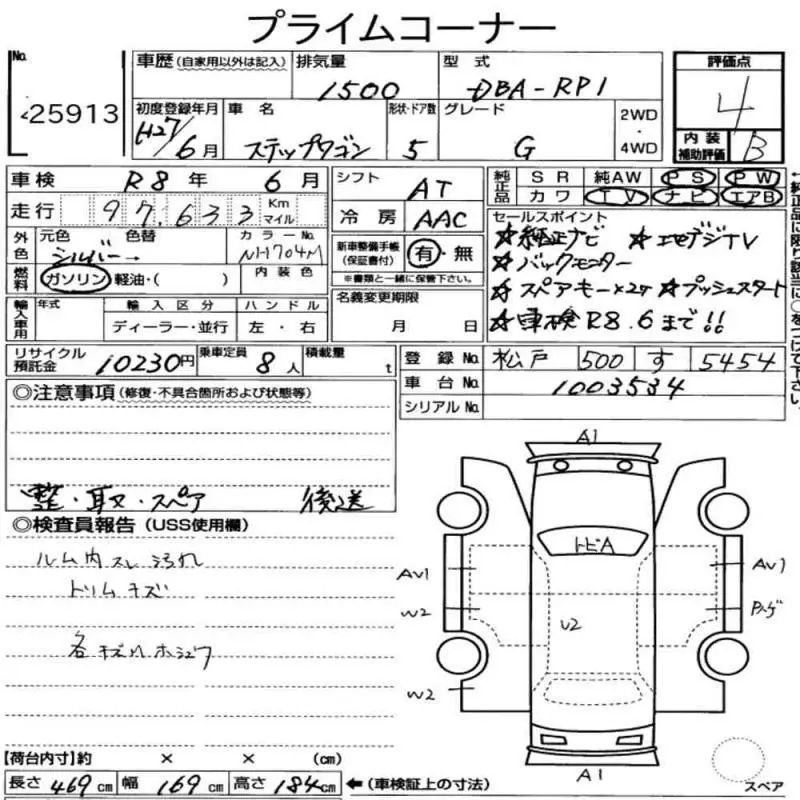 プライムコーナー
No. 25913
車歴 (自家用以外は記入) 排気量 1500 型式 DBA-RP1 評価点 4
初度登録年月 H27/6月 車名 ステップワゴン 形状・ドア数 5 グレード G 2WD・4WD 内装補助評価 B
車検 R8年 6月 シフト AT 純正品 SR 純AW PS PW
走行 97,633 Km マイル 冷房 AAC カワ TV ナビ エアB
外色 元色 シルバー→ 色替 カラーNo. NH704M 新車整備手帳(保証書付) 有・無
セールスポイント
☆純正ナビ ☆エセグジTV
☆バックモニター
☆スペアーキー×2ケ ☆プッシュスタート
☆車検R8.6まで!!
燃料 ガソリン 軽油・( ) 内装色 ※書類と一緒に保管下さい。
輸入車用 年式 輸入区分 ハンドル 名義変更期限
ディーラー・並行 左・右 月 日
リサイクル預託金 10230円 乗車定員 8人 積載量 t 登録No. 松戸 500 す 5454
車台No. 1003534
シリアルNo.
◎注意事項 (修復・不具合箇所および状態等)
整・取・スペア 後送
◎検査員報告 (USS使用欄)
ルーム内スレ汚れ
トリムキズ
各キズハホシュウ
A1
トビA
AV1 AV1
W2 U2
W2
A1
スペア
【荷台内寸】約 × × (cm)
長さ 469cm 幅 169cm 高さ 184cm ←(車検証上の寸法)